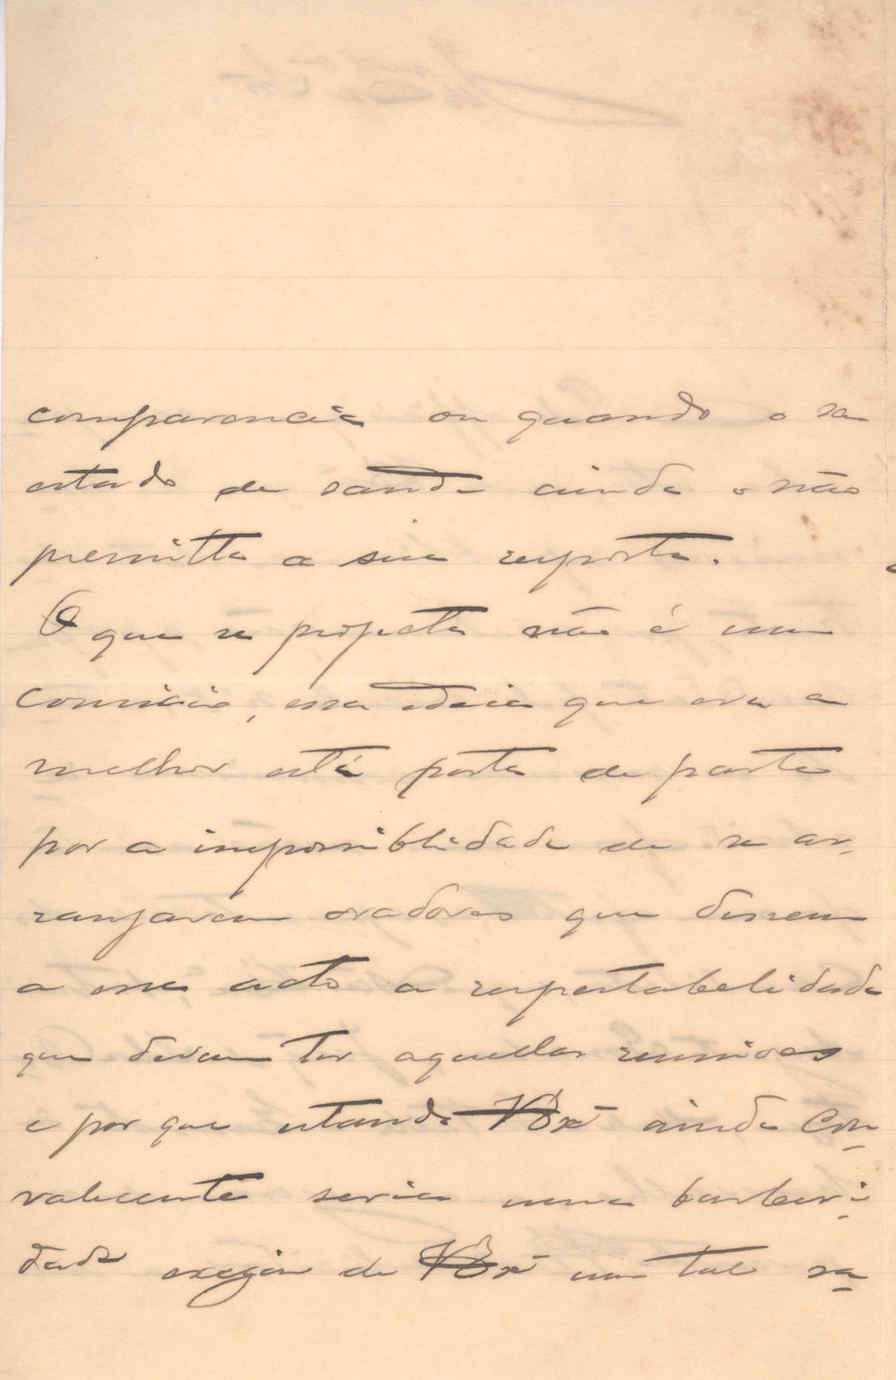 comparencia ou quando o se
estado de saude ainda o não
permitta a sua resposta.
O que se projecta não é um
comicio, essa ideia que era a
melhor está posta de parte
por a impossiblidade de se ar-
ranjarem oradores que dessem
a esse acto a respeitabelidade
que devem ter aquellas reunioes
e por que estando VExª ainda con-
valescente seria uma barberi-
dade exegir de VExª um tal sa-